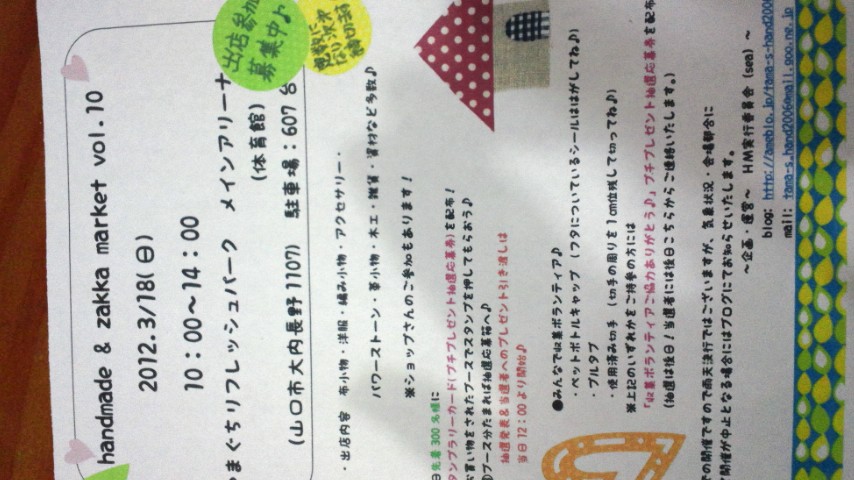 出店参加
募集中♪
handmade & zakka market vol.10
2012.3/18(日)
10:00～14:00
まぐちリフレッシュパーク メインアリーナ
(体育館)
(山口市大内長野1107) 駐車場:607台
・出店内容 布小物・洋服・編み小物・アクセサリー・
パワーストーン・革小物・木工・雑貨・資材など多数♪
※ショップさんのご参加もあります!
先着300名様に
タンプラリーカード(プチプレゼント抽選応募券)を配布!
お買い物をされたブースでスタンプを押してもらおう♪
ブース分たまれば抽選応募箱へ♪
抽選発表&当選者へのプレゼント引き渡しは
当日12:00より開始♪
●みんなで収集ボランティア♪
・ペットボトルキャップ (フタについているシールははがしてね♪)
・プルタブ
・使用済み切手 (切手の周りを1cm位残して切ってね♪)
※上記のいずれかをご持参の方には
「収集ボランティアご協力ありがとう♪」プチプレゼント抽選応募券を配布
(抽選は後日!当選者には後日こちらからご連絡いたします。)
での開催ですので雨天決行ではございますが、気象状況・会場都合に
開催が中止となる場合にはブログにてお知らせいたします。
～企画・運営～ HM実行委員会 (sea) ～
blog: http://ameblo.jp/tama-s-hand2006
mail: tama-s_hand2006@mail.goo.ne.jp